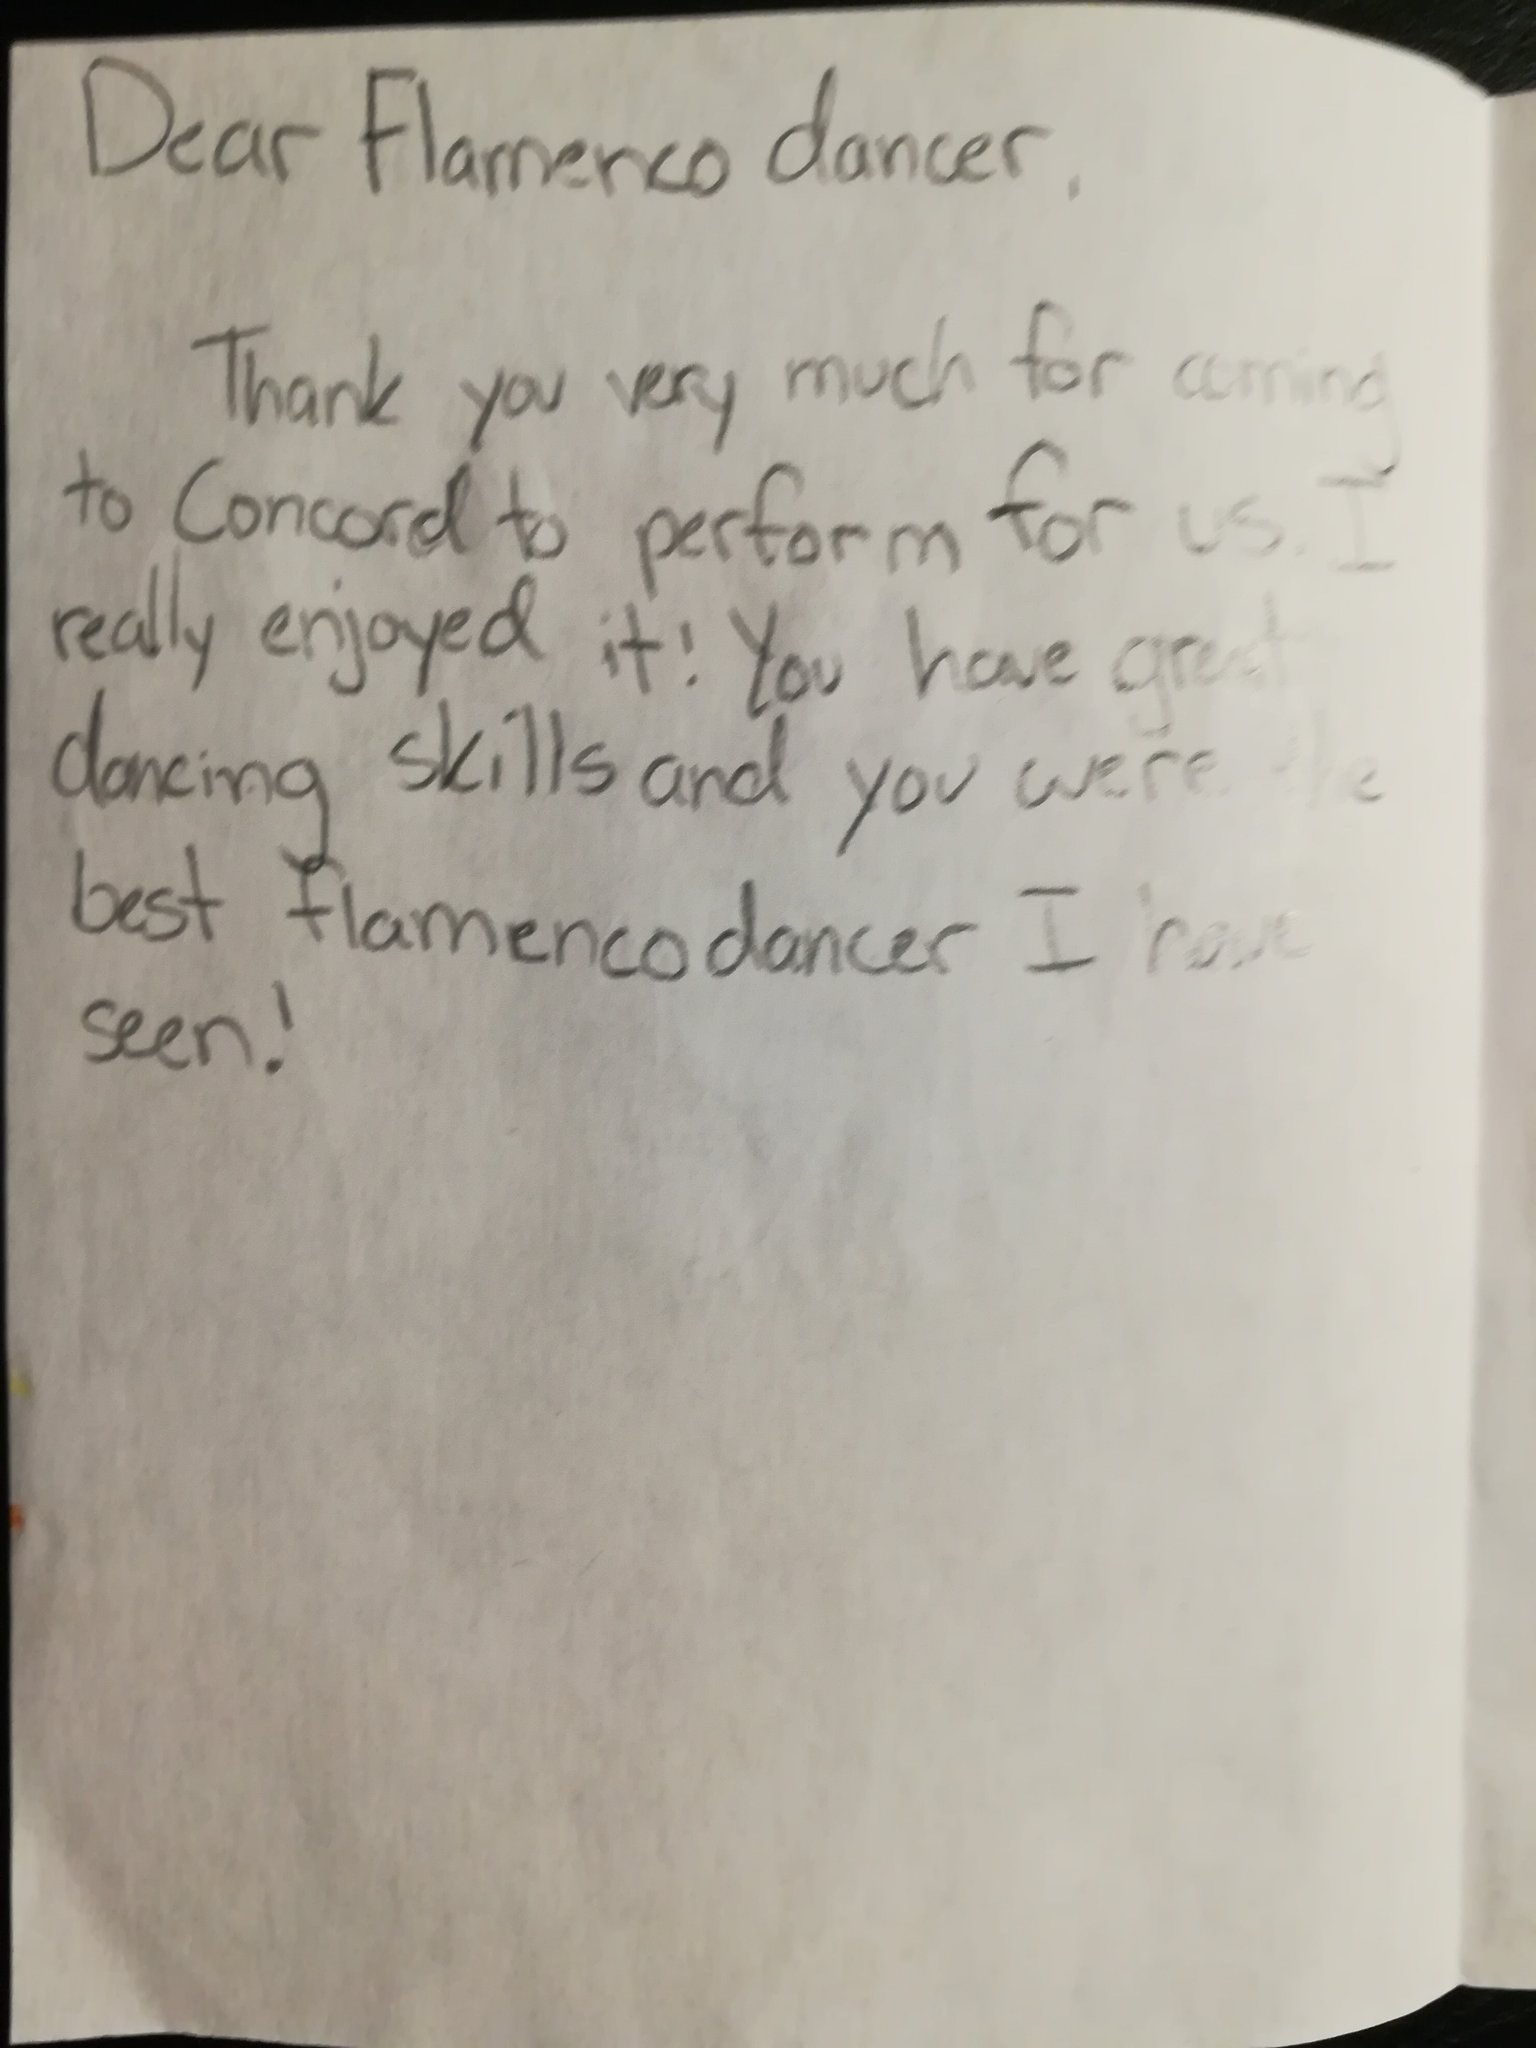 Dear Flamenco dancer,
Thank you very much for coming
to Concord to perform for us. I
really enjoyed it! You have great
dancing skills and you were the
best flamenco dancer I have
seen!